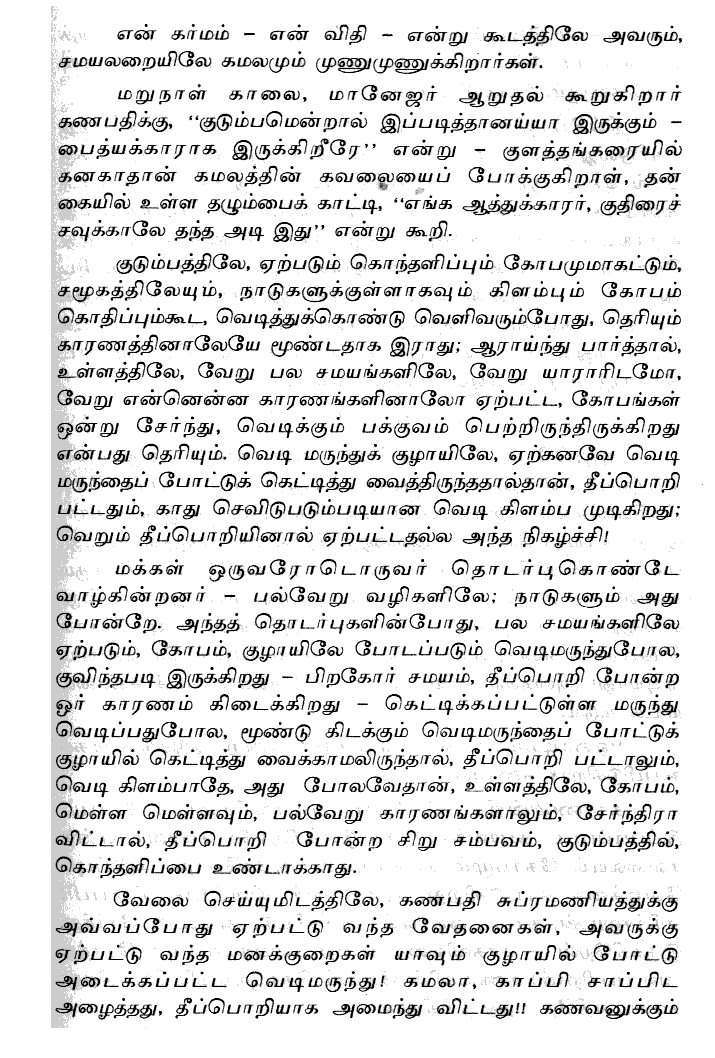 என் கர்மம் – என் விதி – என்று கூடத்திலே அவரும்,
சமயலறையிலே கமலமும் முணுமுணுக்கிறார்கள்.
மறுநாள் காலை, மானேஜர் ஆறுதல் கூறுகிறார்
கணபதிக்கு, ‘‘குடும்பமென்றால் இப்படித்தானய்யா இருக்கும் –
பைத்யக்காராக இருக்கிறீரே’’ என்று – குளத்தங்கரையில்
கனகாதான் கமலத்தின் கவலையைப் போக்குகிறாள், தன்
கையில் உள்ள தழும்பைக் காட்டி, ‘‘எங்க ஆத்துக்காரர், குதிரைச்
சவுக்காலே தந்த அடி இது’’ என்று கூறி.
குடும்பத்திலே, ஏற்படும் கொந்தளிப்பும் கோபமுமாகட்டும்,
சமூகத்திலேயும், நாடுகளுக்குள்ளாகவும் கிளம்பும் கோபம்
கொதிப்பும்கூட, வெடித்துக்கொண்டு வெளிவரும்போது, தெரியும்
காரணத்தினாலேயே மூண்டதாக இராது; ஆராய்ந்து பார்த்தால்,
உள்ளத்திலே, வேறு பல சமயங்களிலே, வேறு யாராரிடமோ,
வேறு என்னென்ன காரணங்களினாலோ ஏற்பட்ட, கோபங்கள்
ஒன்று சேர்ந்து, வெடிக்கும் பக்குவம் பெற்றிருந்திருக்கிறது
என்பது தெரியும். வெடி மருந்துக் குழாயிலே, ஏற்கனவே வெடி
மருந்தைப் போட்டுக் கெட்டித்து வைத்திருந்ததால்தான், தீப்பொறி
பட்டதும், காது செவிடுபடும்படியான வெடி கிளம்ப முடிகிறது;
வெறும் தீப்பொறியினால் ஏற்பட்டதல்ல அந்த நிகழ்ச்சி!
மக்கள் ஒருவரோடொருவர் தொடர்புகொண்டே
வாழ்கின்றனர் – பல்வேறு வழிகளிலே; நாடுகளும் அது
போன்றே. அந்தத் தொடர்புகளின்போது, பல சமயங்களிலே
ஏற்படும், கோபம், குழாயிலே போடப்படும் வெடிமருந்துபோல,
குவிந்தபடி இருக்கிறது – பிறகோர் சமயம், தீப்பொறி போன்ற
ஓர் காரணம் கிடைக்கிறது – கெட்டிக்கப்பட்டுள்ள மருந்து
வெடிப்பதுபோல, மூண்டு கிடக்கும் வெடிமருந்தைப் போட்டுக்
குழாயில் கெட்டித்து வைக்காமலிருந்தால், தீப்பொறி பட்டாலும்,
வெடி கிளம்பாதே, அது போலவேதான், உள்ளத்திலே, கோபம்,
மெள்ள மெள்ளவும், பல்வேறு காரணங்களாலும், சேர்ந்திரா
விட்டால், தீப்பொறி போன்ற சிறு சம்பவம், குடும்பத்தில்,
கொந்தளிப்பை உண்டாக்காது.
வேலை செய்யுமிடத்திலே, கணபதி சுப்ரமணியத்துக்கு
அவ்வப்போது ஏற்பட்டு வந்த வேதனைகள், அவருக்கு
ஏற்பட்டு வந்த மனக்குறைகள் யாவும் குழாயில் போட்டு
அடைக்கப்பட்ட வெடிமருந்து! கமலா, காப்பி சாப்பிட
அழைத்தது, தீப்பொறியாக அமைந்து விட்டது!! கணவனுக்கும்